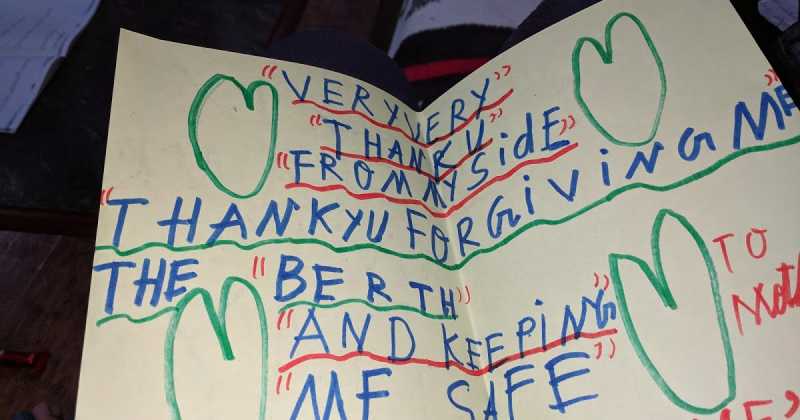 "VERY VERY"
"THANKU"
"FROM MY SidE"
"THANKYU FORGiViNG ME"
THE "BERTH"
"AND KEEPiNG"
"ME SAFE"
TO